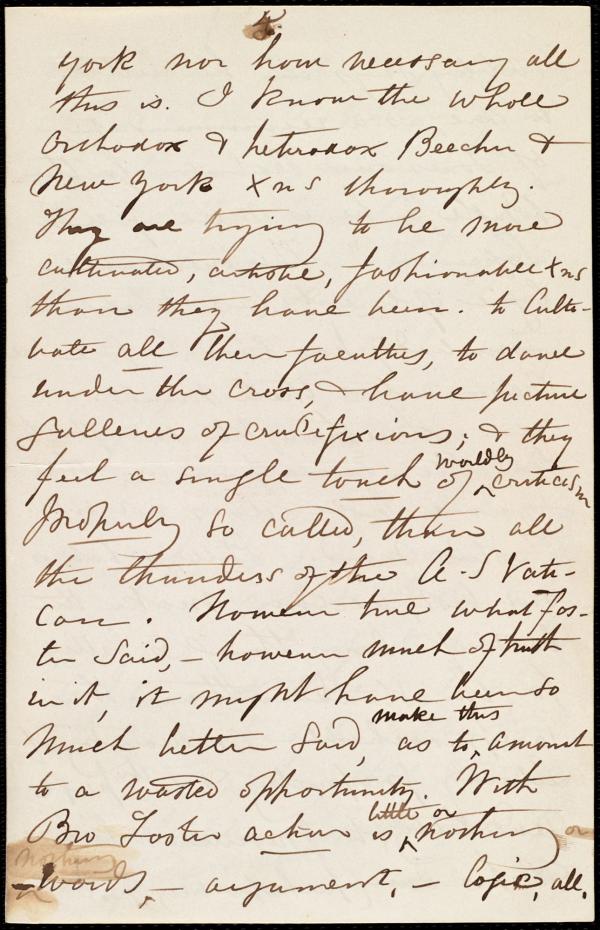 4.
York nor how necessary all
this is. I know the whole
Orthodox & hetrodox Beecher &
New York Xns thoroughly.
They are trying to be more
cultivated, artistic, fashionable Xns
than they have been. to Culti-
vate all their faculties, to dance
under the cross, & have picture
Galleries of crucifixions; & they
feel a single touch of worldly criticism
properly so called, than all
the thunders of the A-S Vati-
can. However true what Fos-
ter said, - however much of truth
in it, it might have been so
much better said, as to make this amount
to a wasted opportunity. With
Bro Foster action is little or nothing or
nothing
- words, - argument, - logic, all,